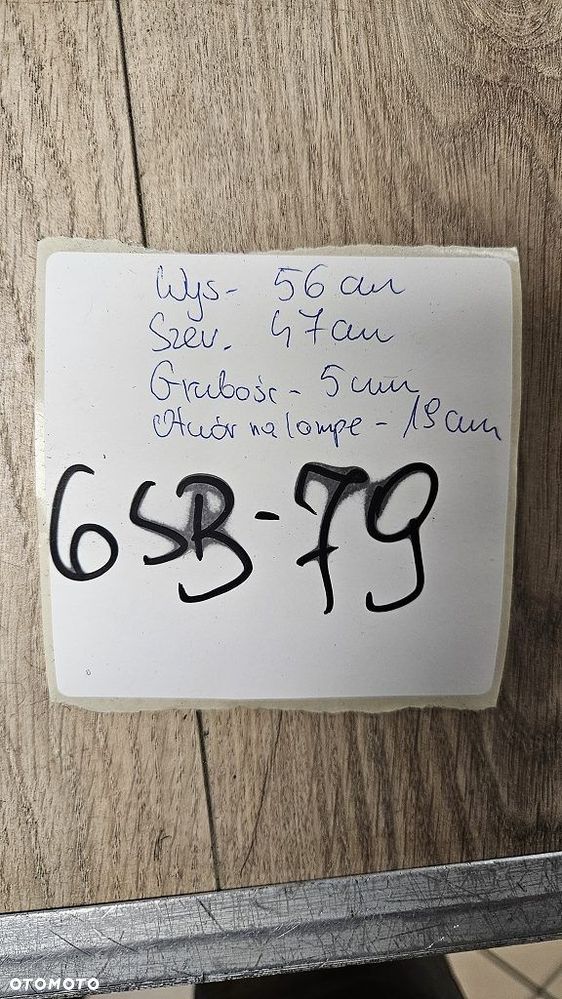 Wys- 56 cm
Szer. 47 cm
Grubość - 5 cm
Otwór na lampe - 19 cm
6SB-79
OTOMOTO